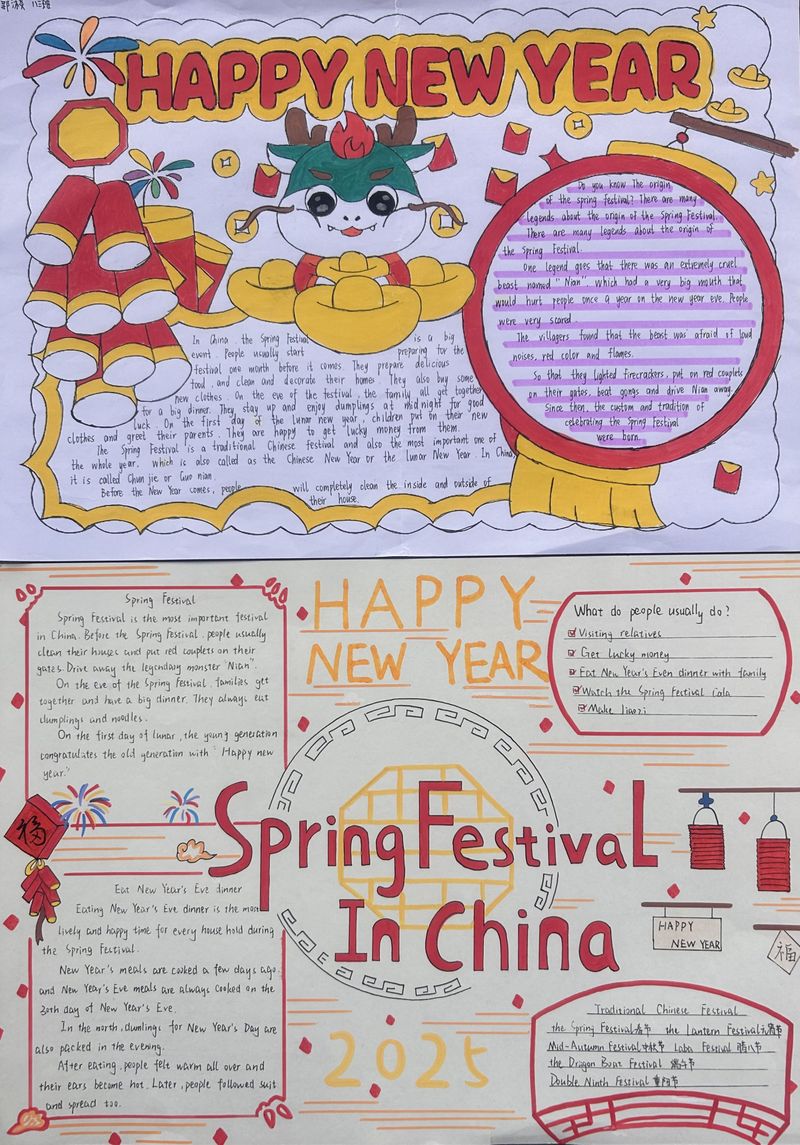 HAPPY NEW YEAR
Do you know The origin
of the spring festival? There are many
legends about the origin of the Spring Festival.
There are many legends about the origin of
the Spring Festival.
One legend goes that there was an extremely cruel
beast named "Nian", which had a very big mouth that
would hurt people once a year on the new year eve. People
were very scared.
The villagers found that the beast was afraid of loud
noises, red color and flames.
So that they lighted firecrackers, put on red couplets
on their gates, beat gongs and drive Nian away.
Since then, the custom and tradition of
celebrating the Spring Festival
were born.
In China, the Spring Festival is a big
event. People usually start preparing for the
festival one month before it comes. They prepare delicious
food, and clean and decorate their homes. They also buy some
new clothes. On the eve of the festival, the family all get together
for a big dinner. They stay up and enjoy dumplings at midnight for good
luck. On the first day of the lunar new year, children put on their new
clothes and greet their parents. They are happy to get lucky money from them.
The Spring Festival is a traditional Chinese festival and also the most important one of
the whole year. which is also called as the Chinese New Year or the lunar New Year. In China,
it is called Chun jie or Guo nian.
Before the New Year comes, people will completely clean the inside and outside of
their house.
Spring Festival
Spring Festival is the most important festival
in China. Before the Spring Festival, people usually
clean their houses and put red couplets on their
gates. Drive away the legendary monster "Nian".
On the eve of the Spring Festival, families get
together and have a big dinner. They always eat
dumplings and noodles.
On the first day of lunar, the young generation
congratulates the old generation with "Happy new
year."
HAPPY
NEW YEAR
What do people usually do?
Visiting relatives
Get Lucky money
Eat New Year's Even dinner with family
Watch the Spring Festival Gala
Make Jiaozi
福
Spring Festival
In China
HAPPY
NEW YEAR
福
Eat New Year's Eve dinner
Eating New Year's Eve dinner is the most
lively and happy time for every house hold during
the Spring Festival.
New Year's meals are cooked a few days ago.
and New Year's Eve meals are always cooked on the
30th day of New Year's Eve.
In the north, dumlings for New Year's Day are
also packed in the evening.
After eating, people felt warm all over and
their ears become hot. Later, people followed suit
and spread too.
2025
Traditional Chinese Festival
the Spring Festival春节 the Lantern Festival元宵节
Mid-Autumn Festival中秋节 Laba Festival 腊八节
the Dragon Boat Festival 端午节
Double Ninth Festival 重阳节